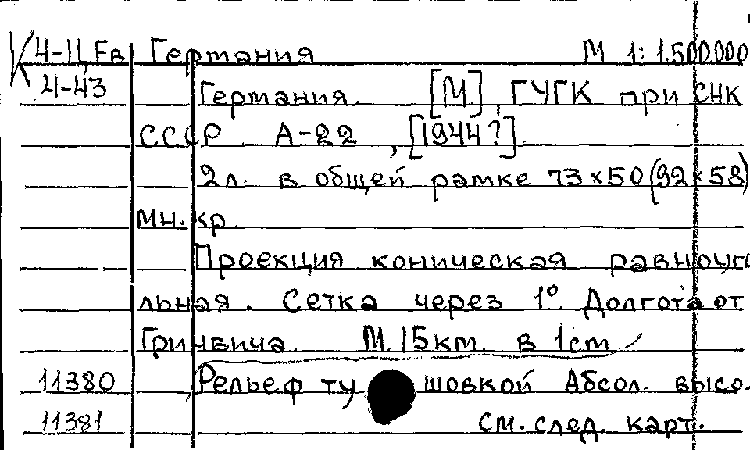 К 4-Ц,Ев Германия М 1:1.500.000
4-43 Германия. [М], ГУГК при СНК
СССР А-22, [1944?]
2л. в общей рамке 73×50(92×58)
мн.кр.
Проекция коническая равноуго
льная. Сетка через 1° Долгота от
Гринвича. М. 15км. в 1cm
11380 Рельеф ту шовкой Абсол. высо.
11381 см. след. карт.